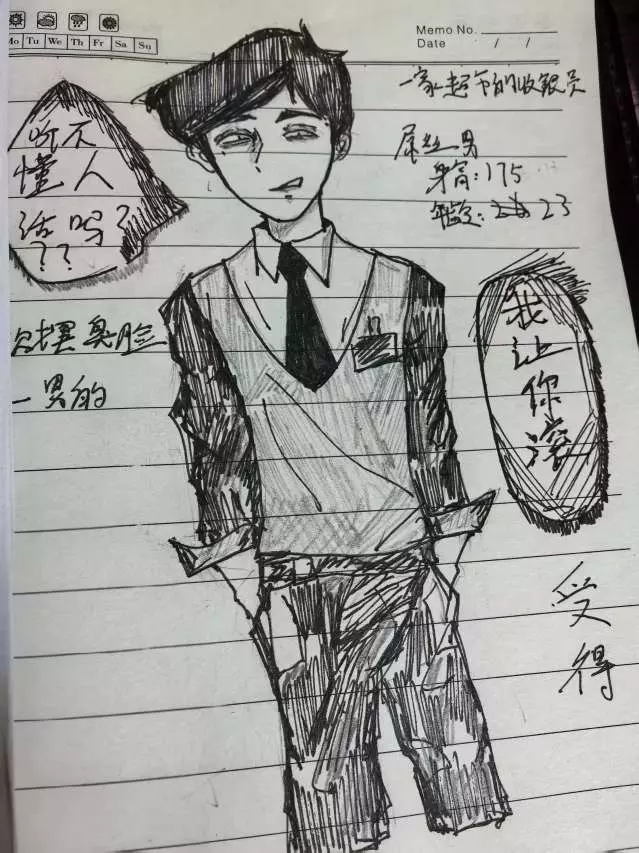 Mo Tu We Th Fr Sa Su
Memo No.
Date / /
一家超市的收银员
屌丝男
身高:175
年龄: 23
听不
懂人
话吗?
??
臭脸
一男的
我
让
你
滚
受
得